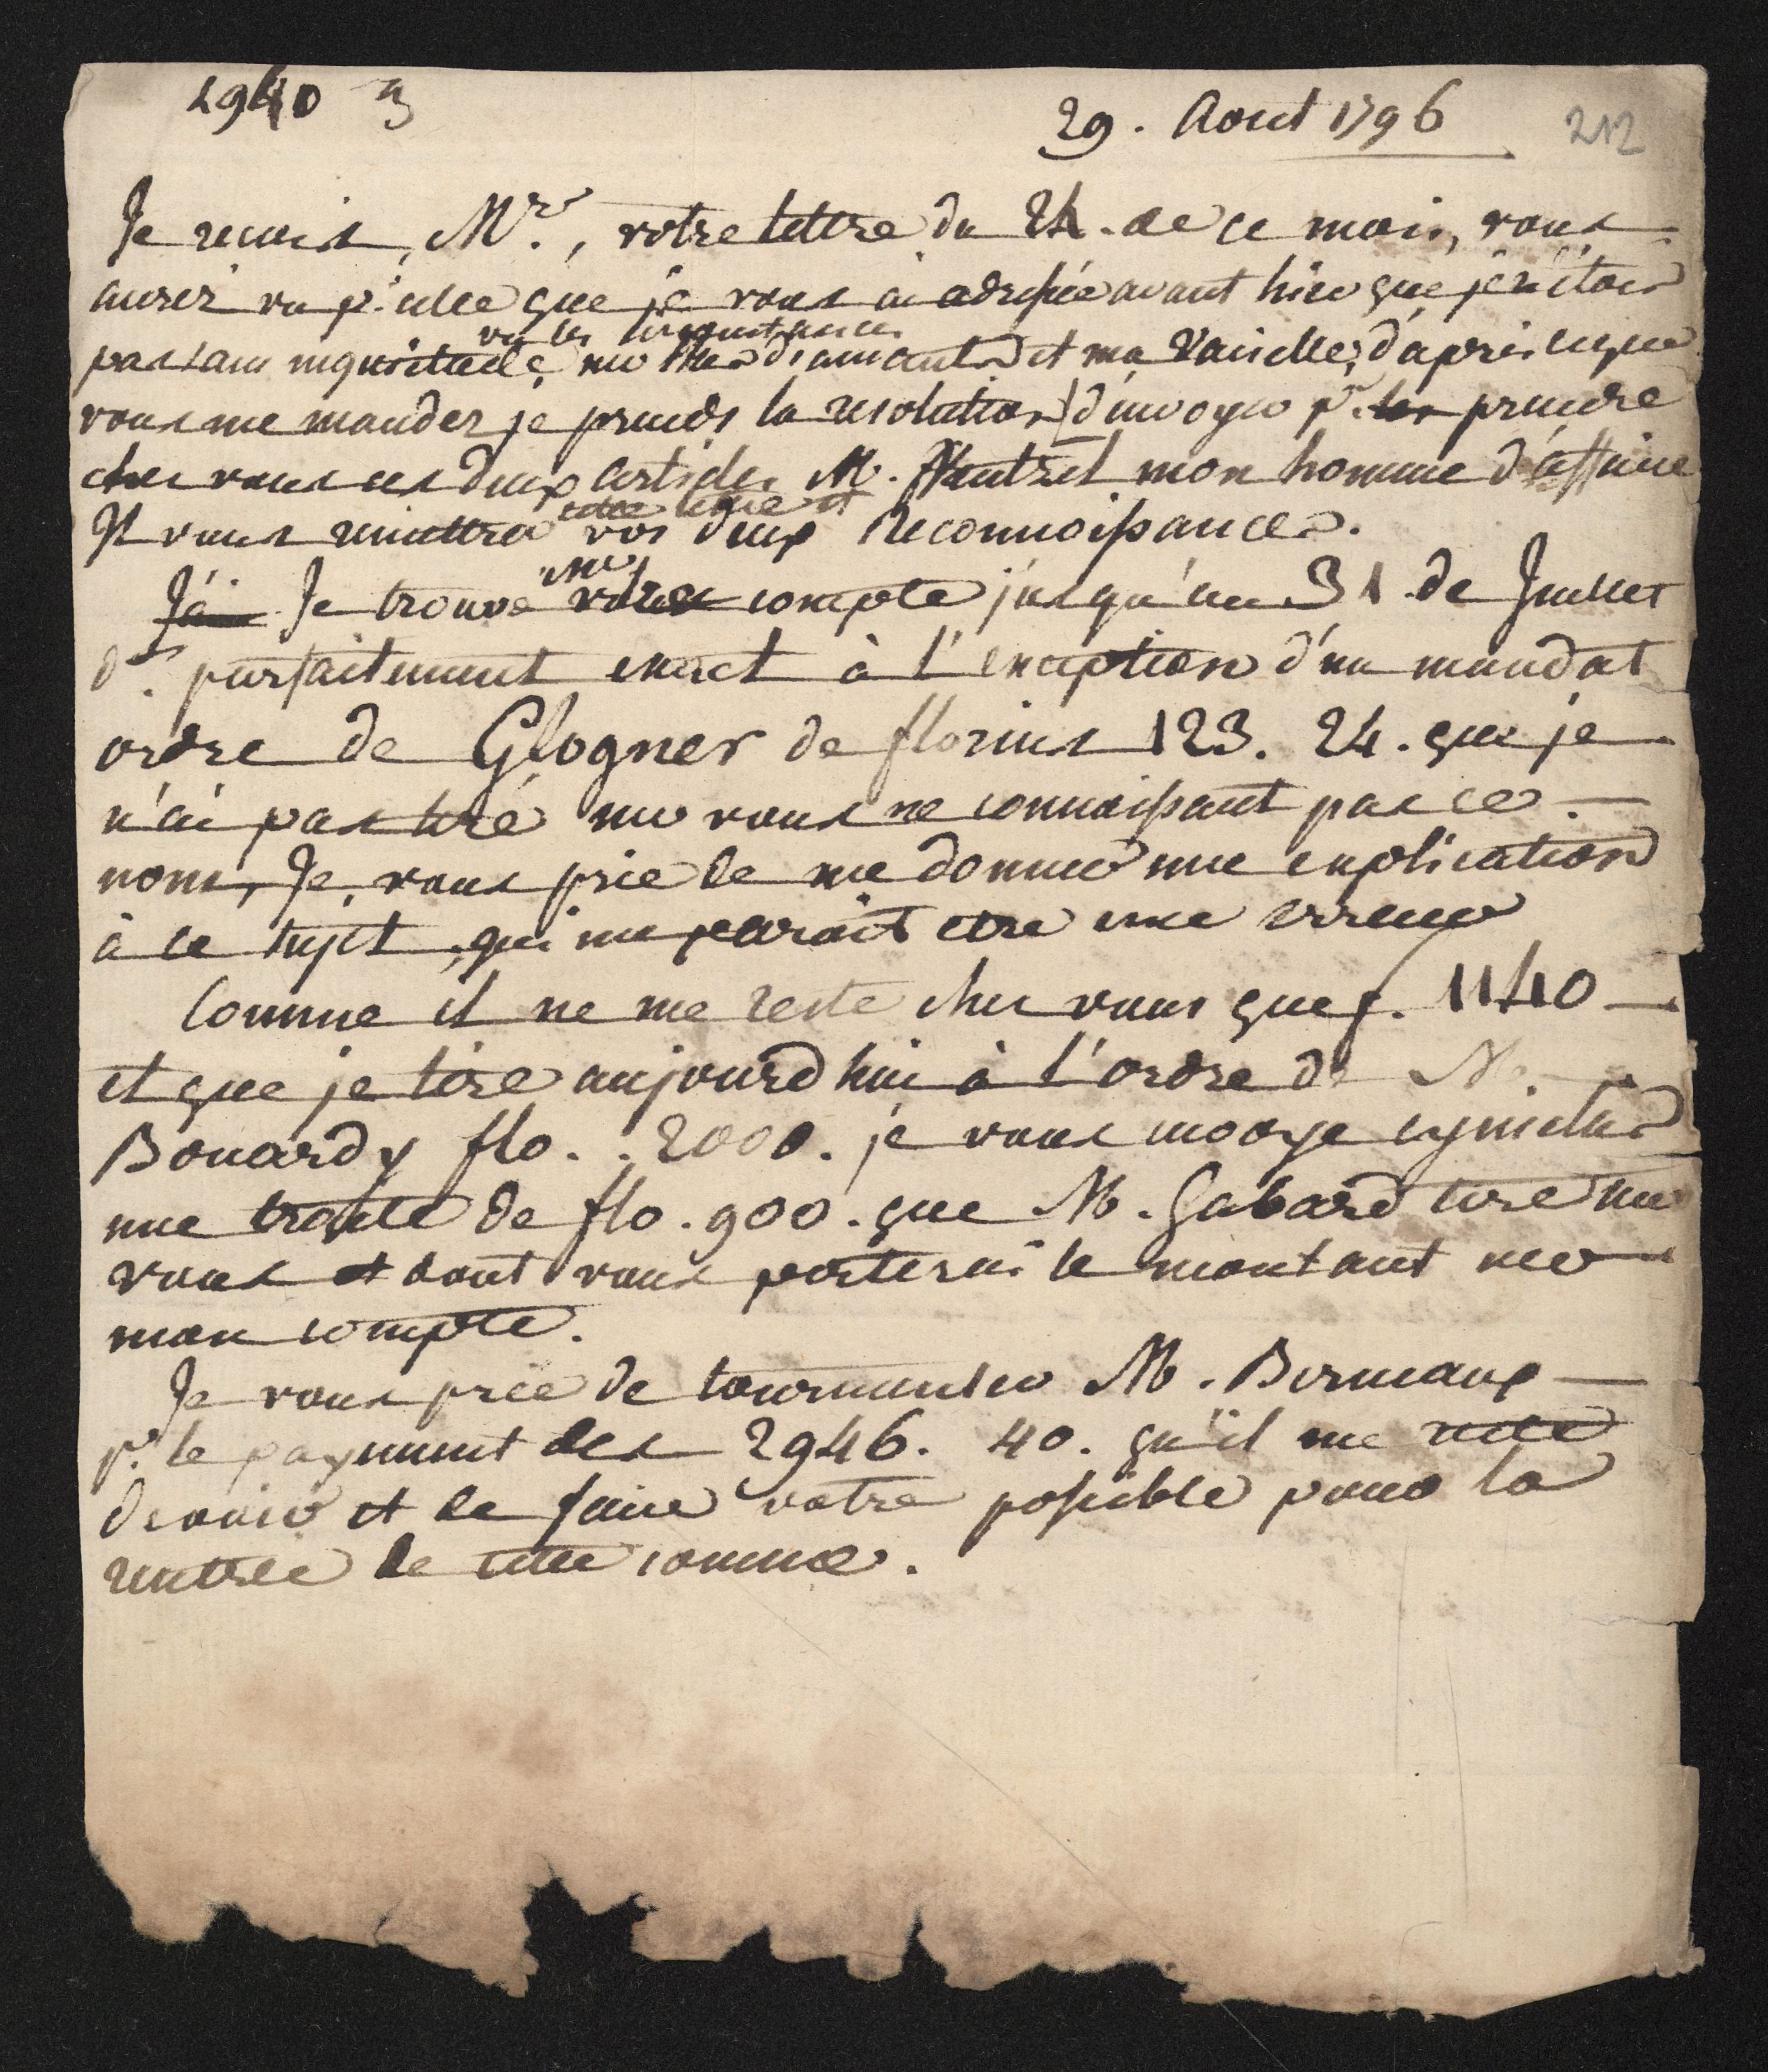 29. Aout 1796
212
Je recois, Mr., votre lettre du 24. de ce mois, vous
aurez vu p. celle que je vous ai adressée avant hier que je n'étois
vu les circonstances
pas sans inquiétude, sur mes diamants et ma Vaisselle, d'après ce que
vous me mandez je prends la resolution d'envoyer pr. les prendre
chez vous ces deux articles M. mon homme d'affaire
cette lettre et
Il vous remettra vos deux reconnoissances.
mon
J'ai Je trouve votre compte jusqu'au 31 de Juillet
dr. parfaitement exact à l'exception d'un mandat
ordre de Glogner de florins 123. 24. que je
n'ai pas tiré sur vous ne connaissant pas ce
nom, Je, vous prie de me donner une explication
à ce sujet, qui me parait etre une erreur
Comme il ne me reste chez vous que f. 1140
et que je tire aujourd hui à l'ordre de M.
Bonardy flo. . 2000. je vous envoye cy inclus
une traite de flo. 900. que M. Gabard tire sur
vous et dont vous porterai le montant sur
mon compte.
Je vous prie de tourmenter M. Bermaux
pr. le payement des 2946. 40. qu'il me reste
devoir et de faire votre possible pour la
rentrée de cette somme.